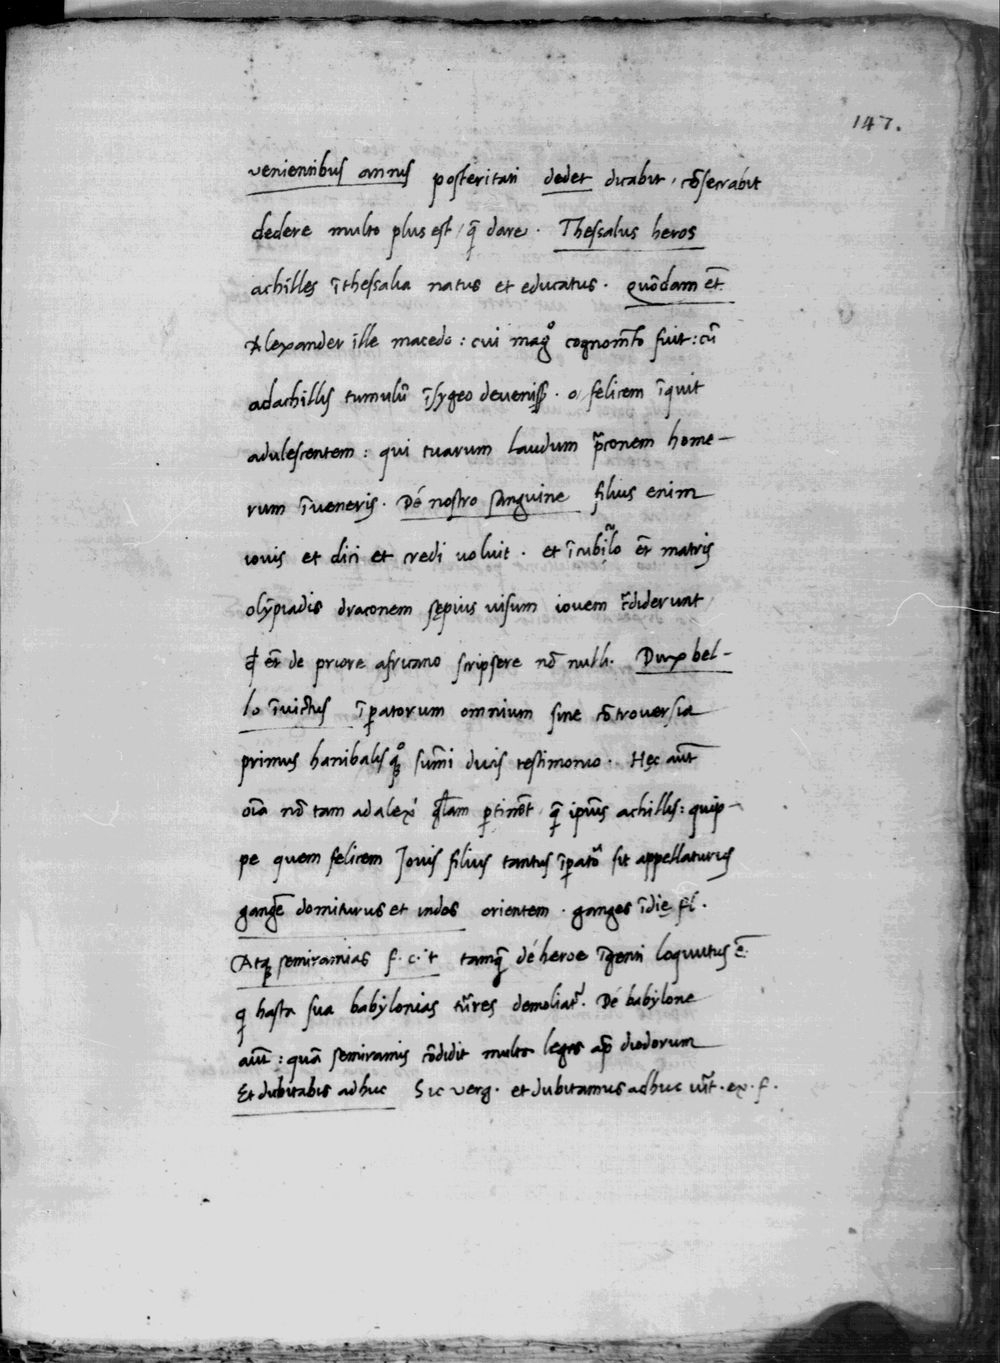 147.
venientibus annis posteritati dedet dicabit, cõsecrabit
dedere multo plus est / q̃ dare. Thessalus heros
achilles ĩthessalia natus et educatus. quõdam et̃
Alexander ille macedo: cui mag⁰ cognom̃to fuit: cũ
adachillis tumulũ ĩsygeo devenisſ. o felicem ĩquit
adulescentem: qui tuarum laudum p̃conem home-
rum ĩveneris. Dé nostro sanguine filius enim
iovis et dici et credi voluit. et ĩcubi̾lo et̃ matris
olỹpiadis draconem sępius visum iovem t̃diderunt
ꝙ et̃ de priore africano scripsere nõ nulli. Dux bel-
lo ĩvictus ĩꝑatorum omnium sine cõtroversia
primus hanibalis qꝫ⁰ sum̃i ducis testimonio. Hęc aut̃
oĩa nõ tam ad alex̃ ꝑtinẽt q̃ ipĩus achillis: quip-
pe quem felicem Jovis filius tantus ĩꝑatõ sit appellaturus
gangẽ domiturus et indos orientem. ganges ĩdię fl̃.
Atqꝫ semiramias f. c. t tamq̃ dé heroe ĩgenti loquutus ẽ.
q hasta sua babylonias tũres demoliat̃. Dé babylone
aut̃: quã semiramis cõdidit multa leges ap̃ diodorum
Et dubitabis adhuc Sic verg. et dubitamus adhuc vir̃t. ex. f.